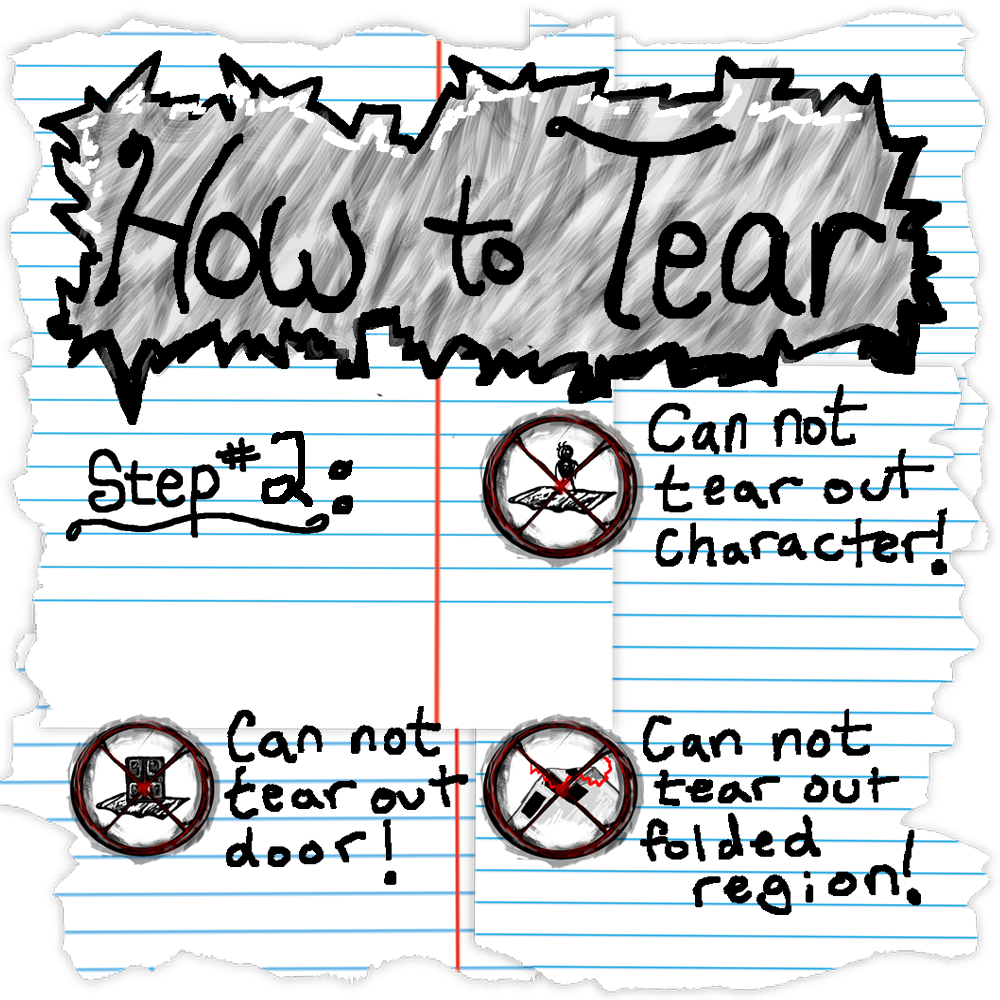 How to Tear
Step #2:
Can not
tear out
character!
Can not
tear out
door!
Can not
tear out
folded
region!